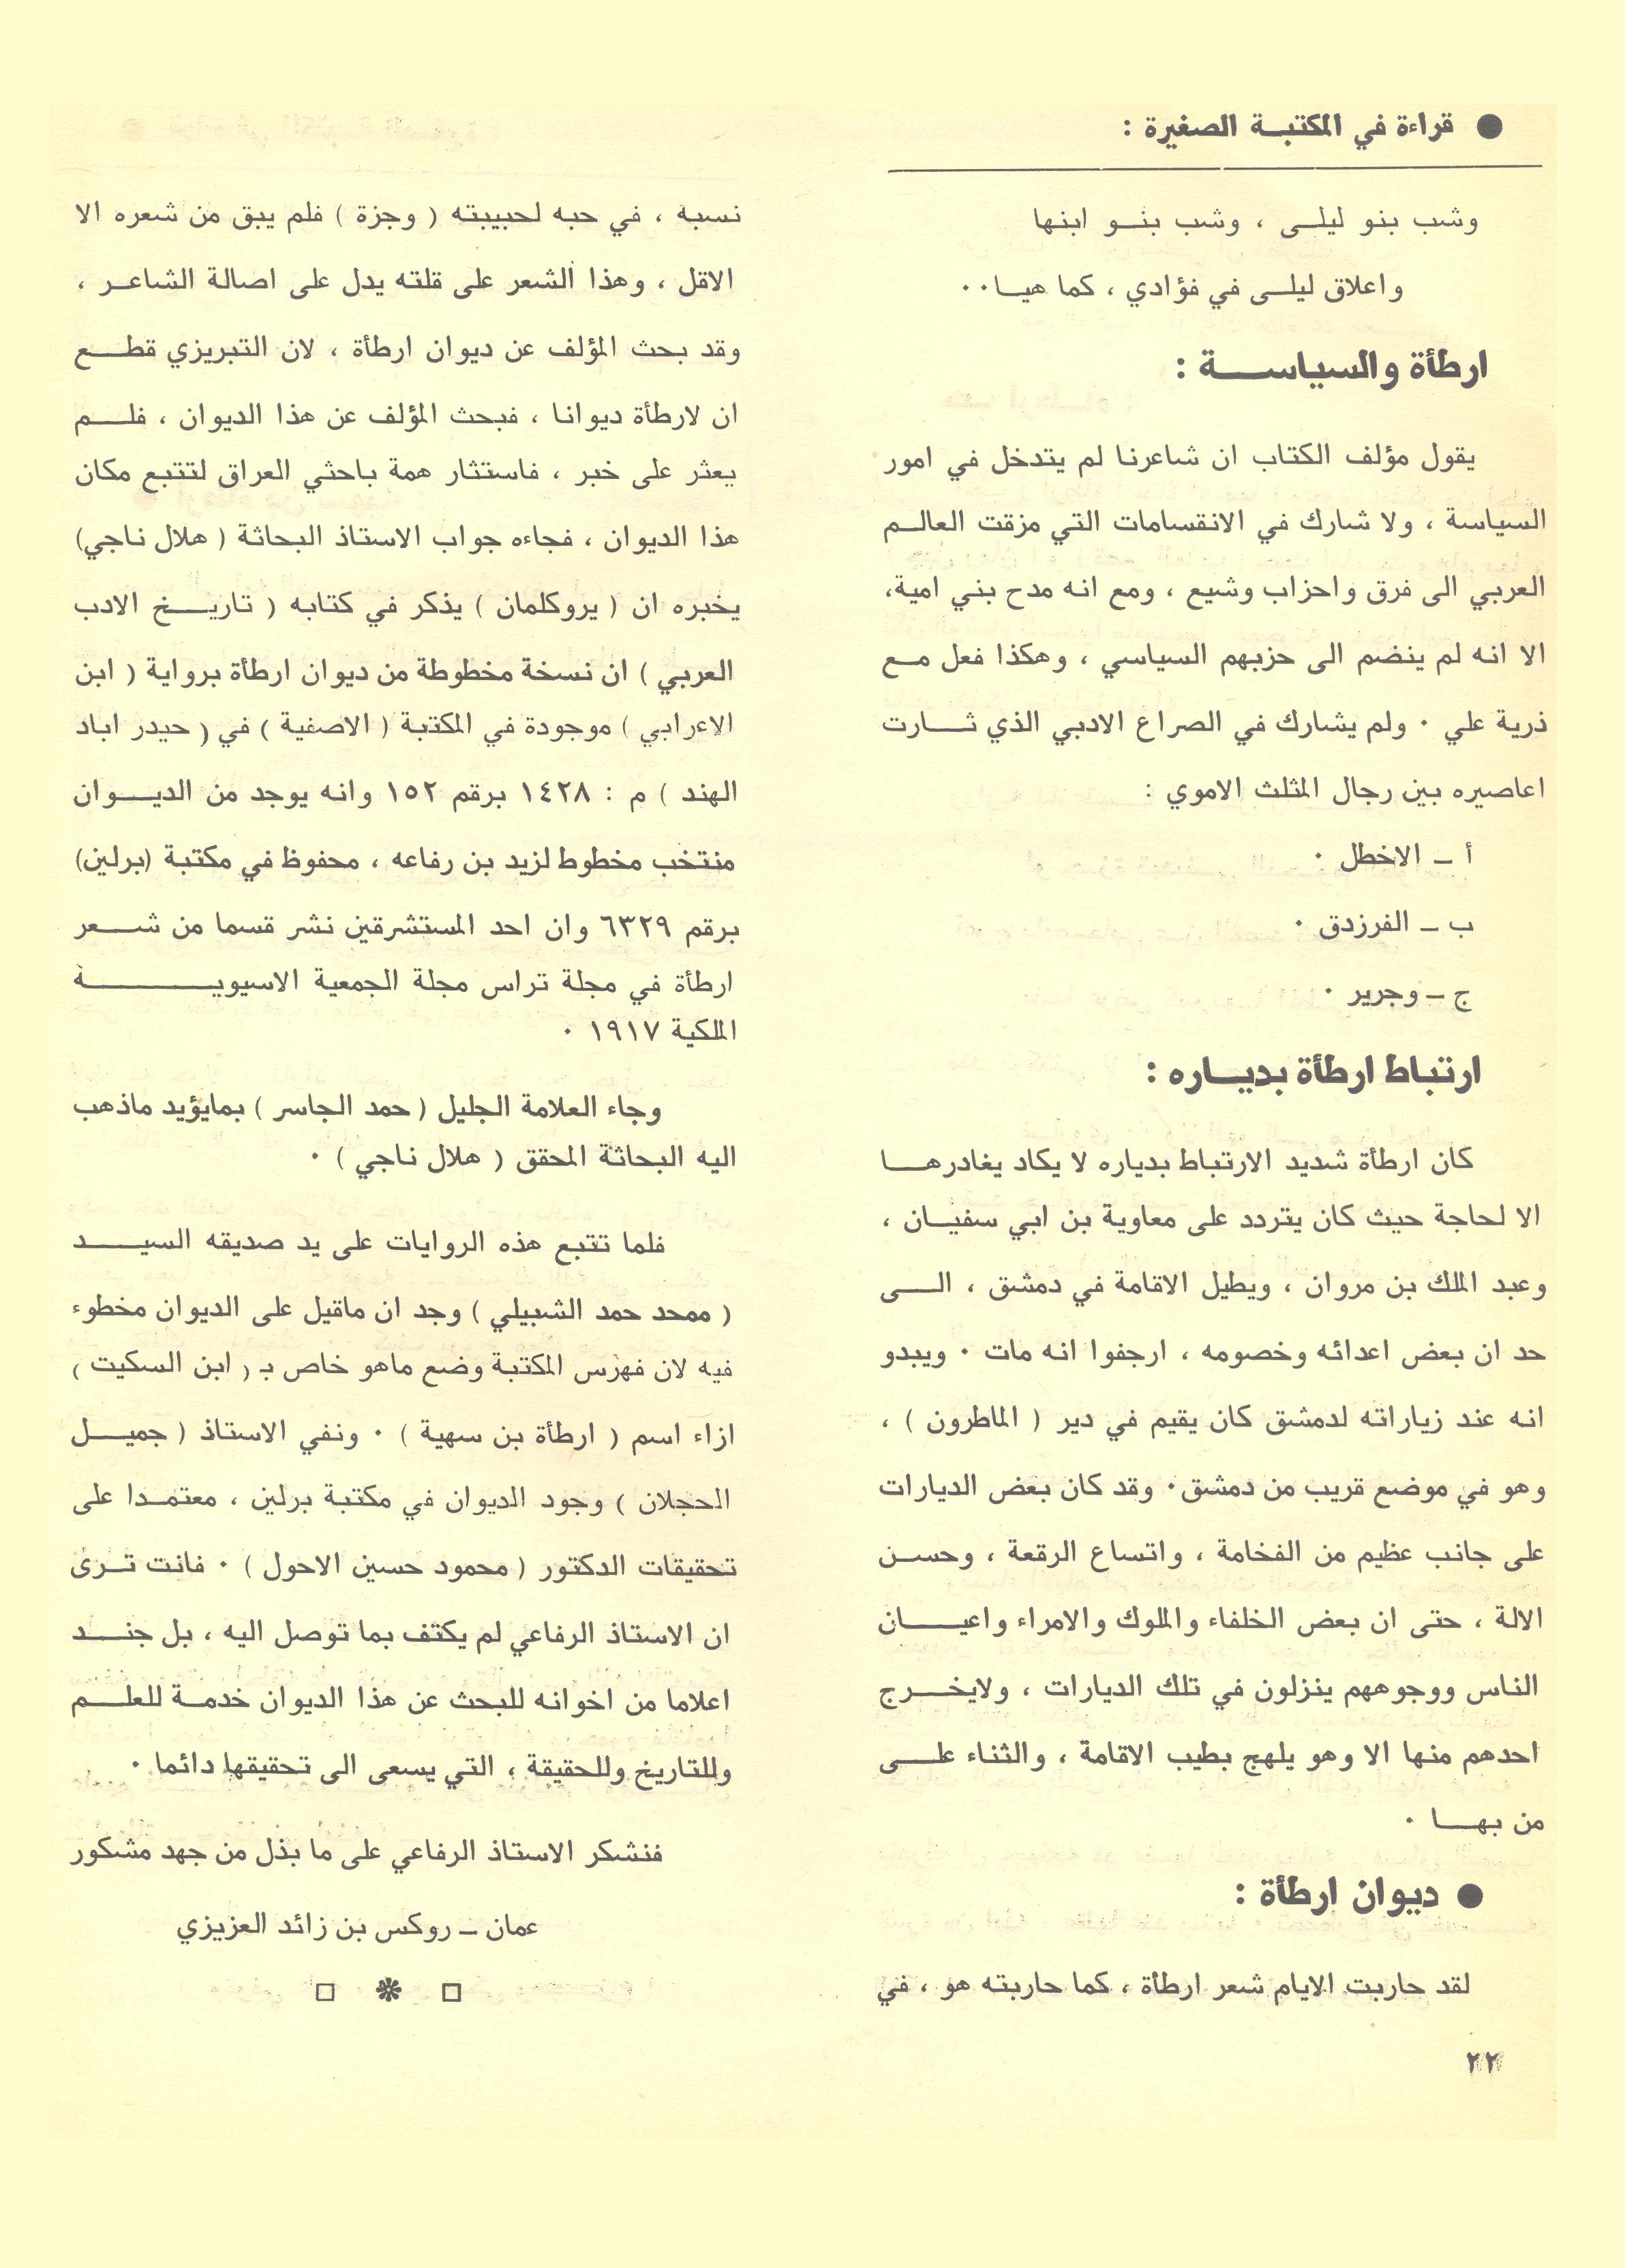 ● قراءة في المكتبة الصغيرة :
وشب بنو ليلى ، وشب بنو ابنها
واعلاق ليلى في فؤادي ، كما هيا٠٠
ارطأة والسياسة :
يقول مؤلف الكتاب ان شاعرنا لم يتدخل في امور
السياسة ، ولا شارك في الانقسامات التي مزقت العالم
العربي الى فرق واحزاب وشيع ، ومع انه مدح بني امية،
الا انه لم ينضم الى حزبهم السياسي ، وهكذا فعل مع
ذرية علي ٠ ولم يشارك في الصراع الادبي الذي ثارت
اعاصيره بين رجال المثلث الاموي :
أ ــ الاخطل ٠
ب ــ الفرزدق ٠
ج ــ وجرير ٠
ارتباط ارطأة بدياره :
كان ارطأة شديد الارتباط بدياره لا يكاد يغادرها
الا لحاجة حيث كان يتردد على معاوية بن ابي سفيان ،
وعبد الملك بن مروان ، ويطيل الاقامة في دمشق ، الى
حد ان بعض اعدائه وخصومه ، ارجفوا انه مات ٠ ويبدو
انه عند زياراته لدمشق كان يقيم في دير ( الماطرون ) ،
وهو في موضع قريب من دمشق٠ وقد كان بعض الديارات
على جانب عظيم من الفخامة ، واتساع الرقعة ، وحسن
الالة ، حتى ان بعض الخلفاء والملوك والامراء واعيان
الناس ووجوههم ينزلون في تلك الديارات ، ولايخرج
احدهم منها الا وهو يلهج بطيب الاقامة ، والثناء على
من بها ٠
● ديوان ارطأة :
لقد حاربت الايام شعر ارطأة ، كما حاربته هو ، في
نسبة ، في حبه لحبيبته ( وجزة ) فلم يبق من شعره الا
الاقل ، وهذا الشعر على قلته يدل على اصالة الشاعر ،
وقد بحث المؤلف عن ديوان ارطأة ، لان التبريزي قطع
ان لارطأة ديوانا ، فبحث المؤلف عن هذا الديوان ، فلم
يعثر على خبر ، فاستثار همة باحثي العراق لتتبع مكان
هذا الديوان ، فجاءه جواب الاستاذ البحاثة ( هلال ناجي)
يخبره ان ( يروكلمان ) يذكر في كتابه ( تاريخ الادب
العربي ) ان نسخة مخطوطة من ديوان ارطأة برواية ( ابن
الاعرابي ) موجودة في المكتبة ( الاصفية ) في ( حيدر اباد
الهند ) م : ١٤٢٨ برقم ١٥٢ وانه يوجد من الديوان
منتخب مخطوط لزيد بن رفاعه ، محفوظ في مكتبة (برلين)
برقم ٦٣٢٩ وان احد المستشرقين نشر قسما من شعر
ارطأة في مجلة تراس مجلة الجمعية الاسيوية
الملكية ١٩١٧ ٠
وجاء العلامة الجليل ( حمد الجاسر ) بمايؤيد ماذهب
اليه البحاثة المحقق ( هلال ناجي ) ٠
فلما تتبع هذه الروايات على يد صديقه السيد
( ممحد حمد الشبيلي ) وجد ان ماقيل على الديوان مخطوء
فيه لان فهرس المكتبة وضع ماهو خاص بـ ( ابن السكيت )
ازاء اسم ( ارطأة بن سهية ) ٠ ونفي الاستاذ ( جميل
الحجلان ) وجود الديوان في مكتبة برلين ، معتمدا على
تحقيقات الدكتور ( محمود حسين الاحول ) ٠ فانت ترى
ان الاستاذ الرفاعي لم يكتف بما توصل اليه ، بل جند
اعلاما من اخوانه للبحث عن هذا الديوان خدمة للعلم
وللتاريخ وللحقيقة ، التي يسعى الى تحقيقها دائما ٠
فنشكر الاستاذ الرفاعي على ما بذل من جهد مشكور
عمان ــ روكس بن زائد العزيزي
٢٢